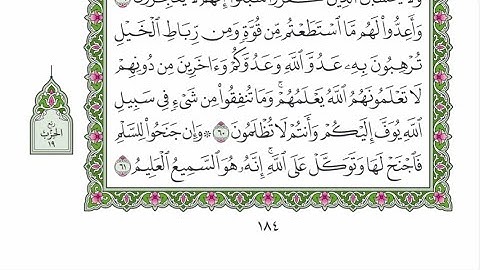 وَأَعِدُّوا۟ لَهُم مَّا ٱسْتَطَعْتُم مِّن قُوَّةٍ وَمِن رِّبَاطِ ٱلْخَيْلِ
تُرْهِبُونَ بِهِۦ عَدُوَّ ٱللَّهِ وَعَدُوَّكُمْ وَءَاخَرِينَ مِن دُونِهِمْ
لَا تَعْلَمُونَهُمُ ٱللَّهُ يَعْلَمُهُمْ ۚ وَمَا تُنفِقُوا۟ مِن شَىْءٍ فِى سَبِيلِ
ٱللَّهِ يُوَفَّ إِلَيْكُمْ وَأَنتُمْ لَا تُظْلَمُونَ ٦٠ ۞ وَإِن جَنَحُوا۟ لِلسَّلْمِ
فَٱجْنَحْ لَهَا وَتَوَكَّلْ عَلَى ٱللَّهِ ۚ إِنَّهُۥ هُوَ ٱلسَّمِيعُ ٱلْعَلِيمُ ٦١
ربع
الحزب
١٩
١٨٤